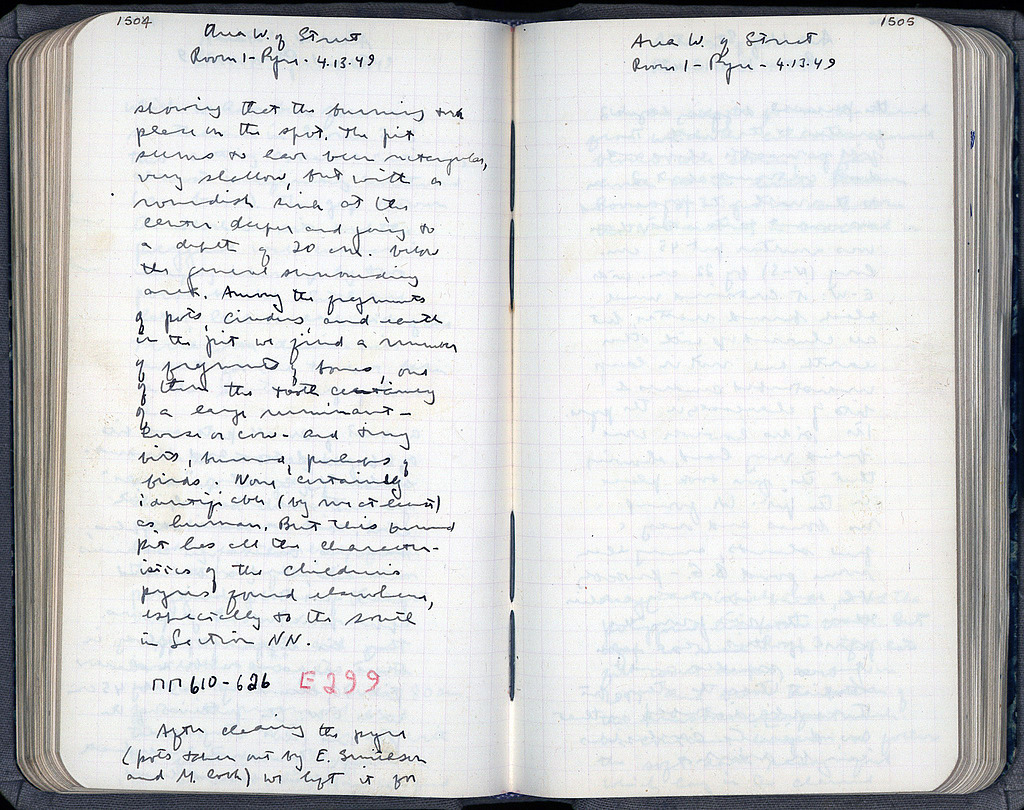 1504
Area W. of Street
Room 1 - Pyre - 4.13.49
showing that the burning took
place on the spot. The pit
seems to have been rectangular,
very shallow, but with a
roundish sink at the
center deeper and going to
a depth of 20 cm. below
the general surrounding
area. Among the fragments
of pots, cinders, and earth
in the pit we found a number
of fragments of bones, one
of them the tooth certainly
of a large ruminant -
horse or cow - and tiny
bits, burned, perhaps of
birds. None certainly
identifiable (by me at least)
as human. But this burned
pit has all the character-
istics of the children's
pyres found elsewhere,
especially to the south
in Section NN.
ΠΠ 610-626 E299
After cleaning the pyre
(pots taken out by E. Smithson
and M. Cook) we left it for
1505
Area W. of Street
Room 1 - Pyre - 4.13.49